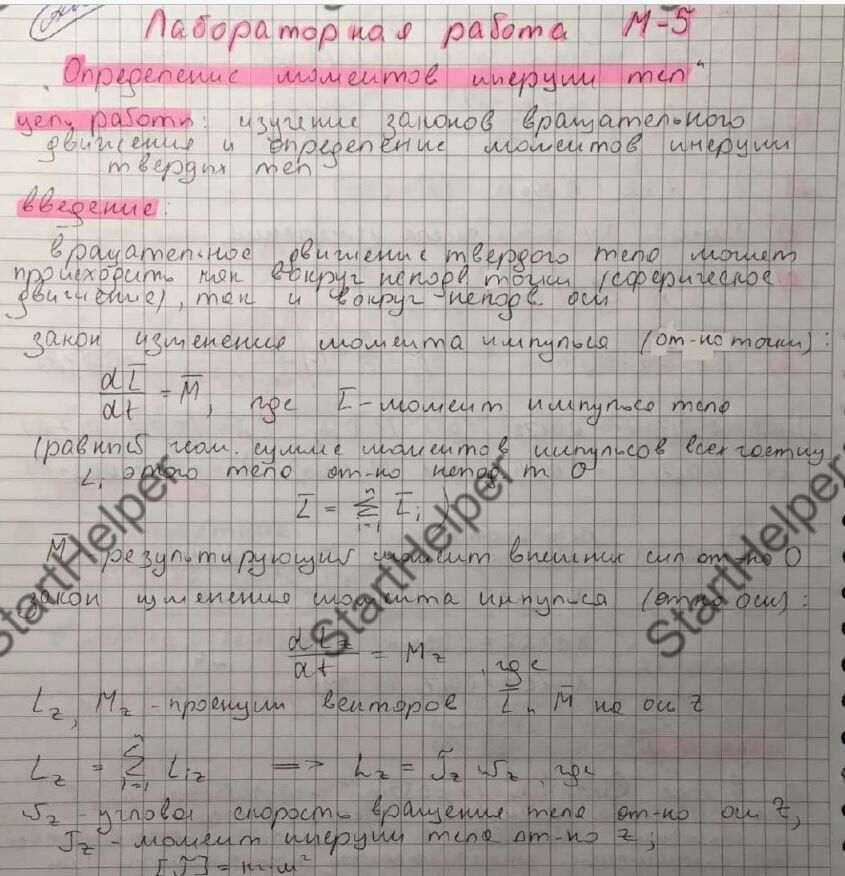 Лабораторная работа М-5
"Определение моментов инерции тел"
цель работы: изучение законов вращательного
движения и определение моментов инерции
твердых тел
введение:
вращательное движение твердого тела может
происходить как вокруг неподв точки (сферическое
движение), так и вокруг неподв. оси
закон изменения момента импульса (от-но точки):
dL̄/dt = M̄, где L̄ - момент импульса тела
(равный геом. сумме моментов импульсов всех частиц
Lᵢ этого тела от-но неподв т О
L̄ = Σⁿᵢ₌₁ L̄ᵢ )
M̄ - результирующий момент внешних сил от-но О
закон изменения момента импульса (от-но оси):
dLz/dt = Mz, где
Lz, Mz - проекции векторов L̄ и M̄ на ось z
Lz = Σⁿᵢ₌₁ Liz => Lz = Jz ωz, где
ωz - угловая скорость вращения тела от-но оси z,
Jz - момент инерции тела от-но z;
[J] = кг·м²
StartHelper
StartHelper
StartHelper